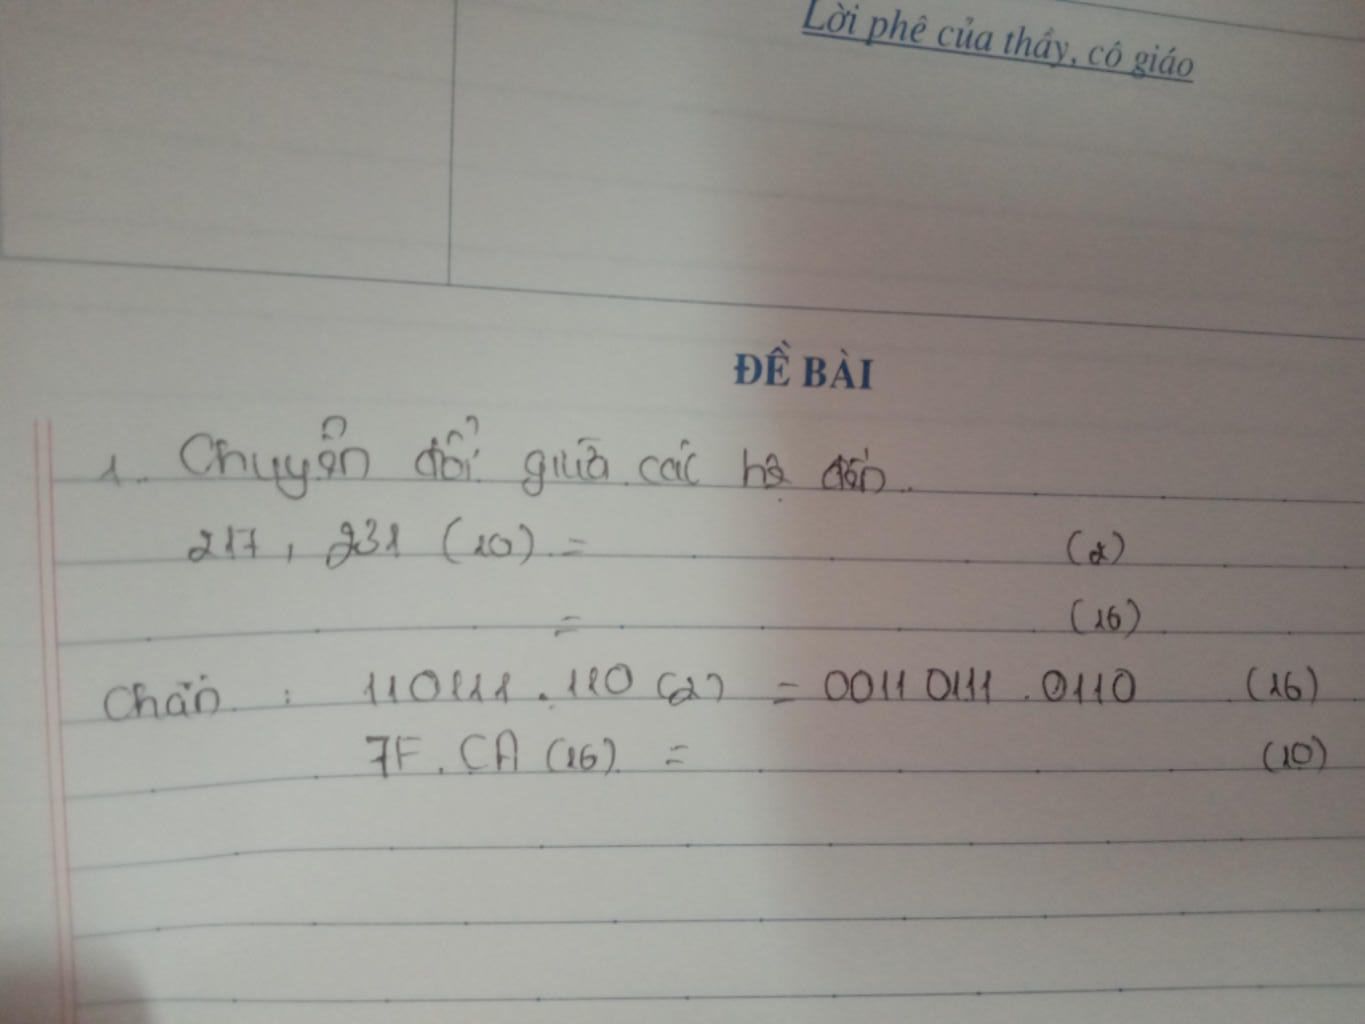 Lời phê của thầy, cô giáo
ĐỀ BÀI
1. Chuyển đổi giữa các hệ đếm.
217, 231 (10) = (2)
= (16)
Chẵn : 110111.110 (2) = 0011 0111.0110 (16)
7F.CA (16) = (10)